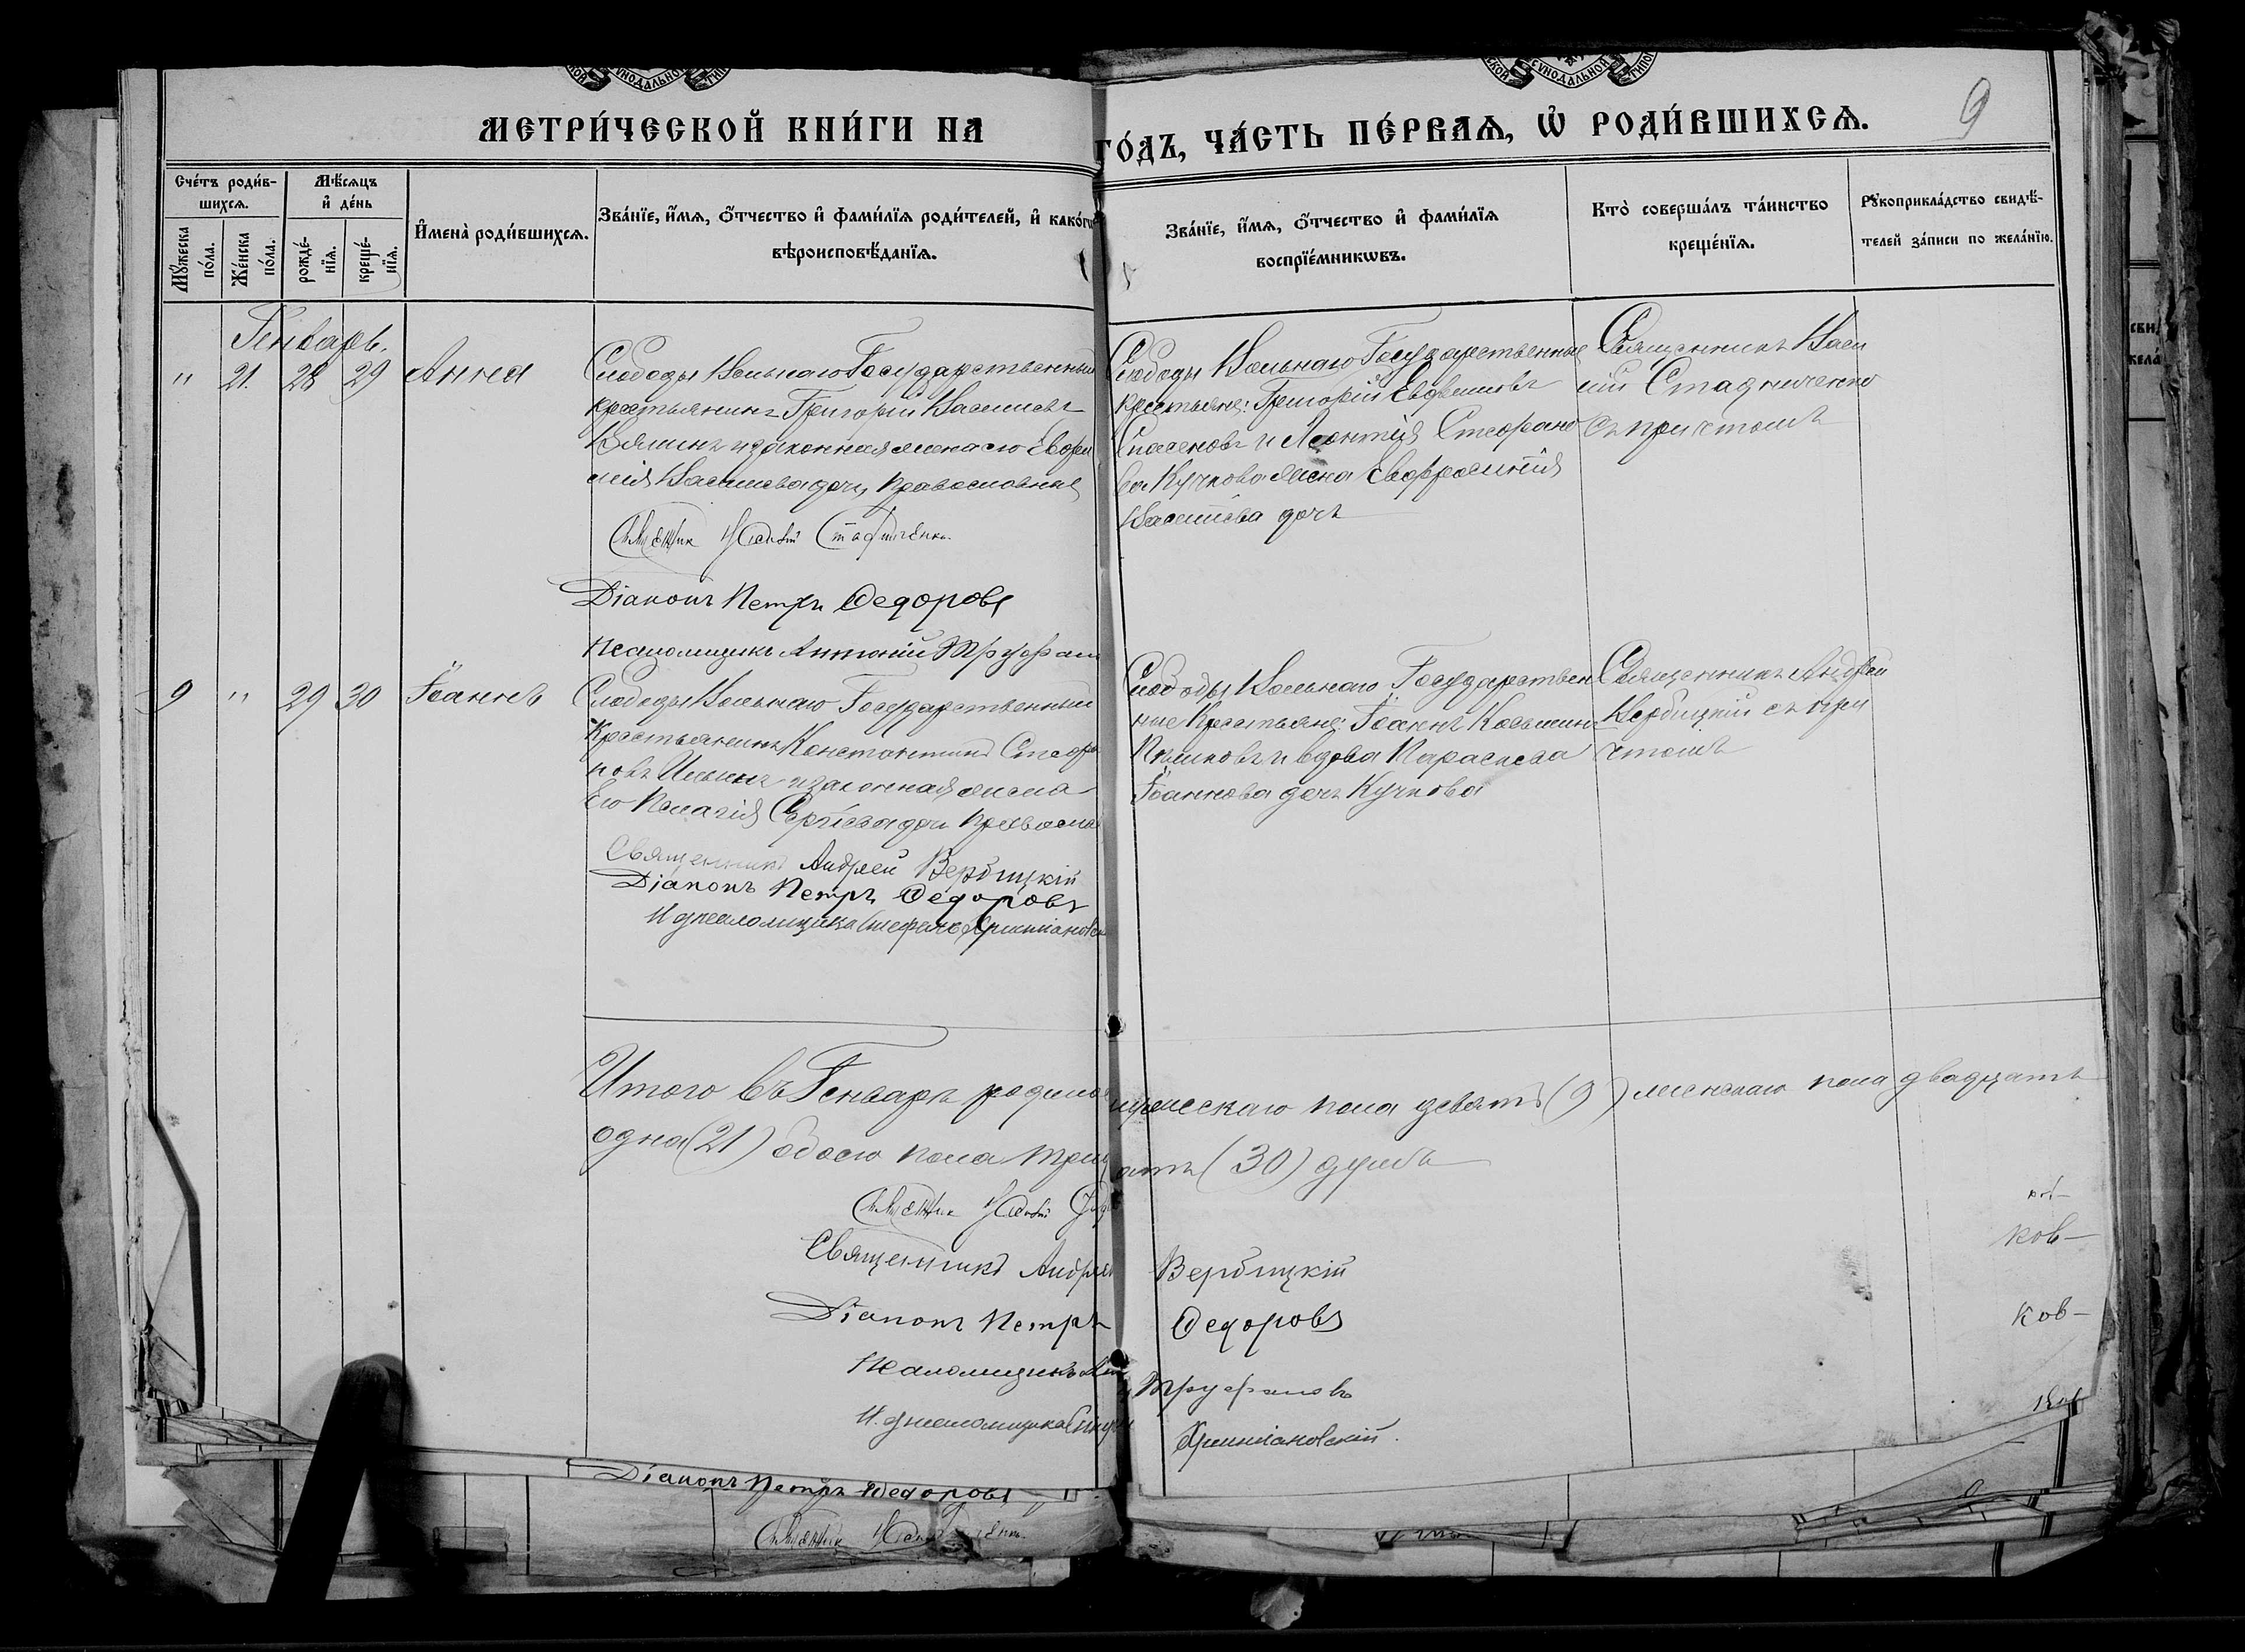 МЕТРИ́ЧЕСКОЙ КНИ́ГИ НА
ГО́ДЪ, ЧА́СТЬ ПЕ́РВАѦ, Ѡ РОДИ́ВШИХСѦ.
9
Сче́тъ роди́в-
шихсѧ.
Мꙋ́жеска
по́ла.
Же́нска
по́ла.
Мѣ́сѧцъ
и҆ де́нь
рожде́-
нїѧ.
креще́-
нїѧ.
И҆мена̀ роди́вшихсѧ.
Зва́нїе, и҆́мѧ, ѻ҆́тчество и҆ фами́лїѧ роди́телей, и҆ како́гѡ
вѣроисповѣ́данїѧ.
Зва́нїе, и҆́мѧ, ѻ҆́тчество и҆ фами́лїѧ
воспрїе́мникѡвъ.
Кто̀ соверша́лъ та́инство
креще́нїѧ.
Рꙋкоприкла́дство свидѣ́-
телей за́писи по жела́нїю.
Генварь.
" 21. 28 29 Анна
Слободы Вольнаго Государственный
крестьянинъ Григорій Васильевъ
и законная жена его Евфи
мія Васильева дочь, православные
Священник Василій Стадниченко.
Діаконъ Петръ Ѳедоровъ
Псаломщикъ Антоній Труфан
Слободы Вольнаго Государственные
крестьяне: Григорій Евфимовъ
и Леонтія Стефано
ва Кучкова жена Евфросинія
Васильева дочь
Священникъ Васи
лій Стадниченко
съ причтомъ
9 " 29 30 Іоаннъ
Слободы Вольнаго Государственный
Крестьянинъ Константинъ Стефа
новъ Ильинъ и законная жена
Его Пелагія Сергіева дочь Правосла
Священникъ Андрей Вербицкій
Діаконъ Петръ Ѳедоровъ
И д псаломщика Стефанъ Христіановск
Слободы Вольнаго Государствен
ные Крестьяне: Іоаннъ Косьминъ
и вдова Параскева
Іоаннова дочь Кучкова
Священникъ Андрей
Вербицкій съ при
чтомъ
Итого въ Генварѣ родилос
мужескаго пола девять (9) женскаго пола двадцать
одна (21) обоего пола трид
ать (30) душъ
Священник Василій
Священникъ Андрей Вербицкій
Діаконъ Петръ Ѳедоровъ
Псаломщикъ Ант Труфановъ
И. д псаломщика Стефан Христіановскій.
ков-
ков-
Діаконъ Петръ Ѳедоровъ
Священник Василій